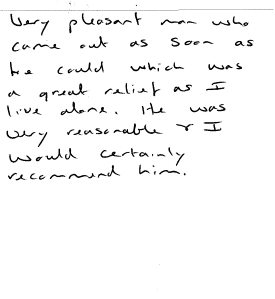 Very pleasant man who
came out as soon as
he could which was
a great relief as I
live alone. He was
very reasonable & I
would certainly
recommend him.